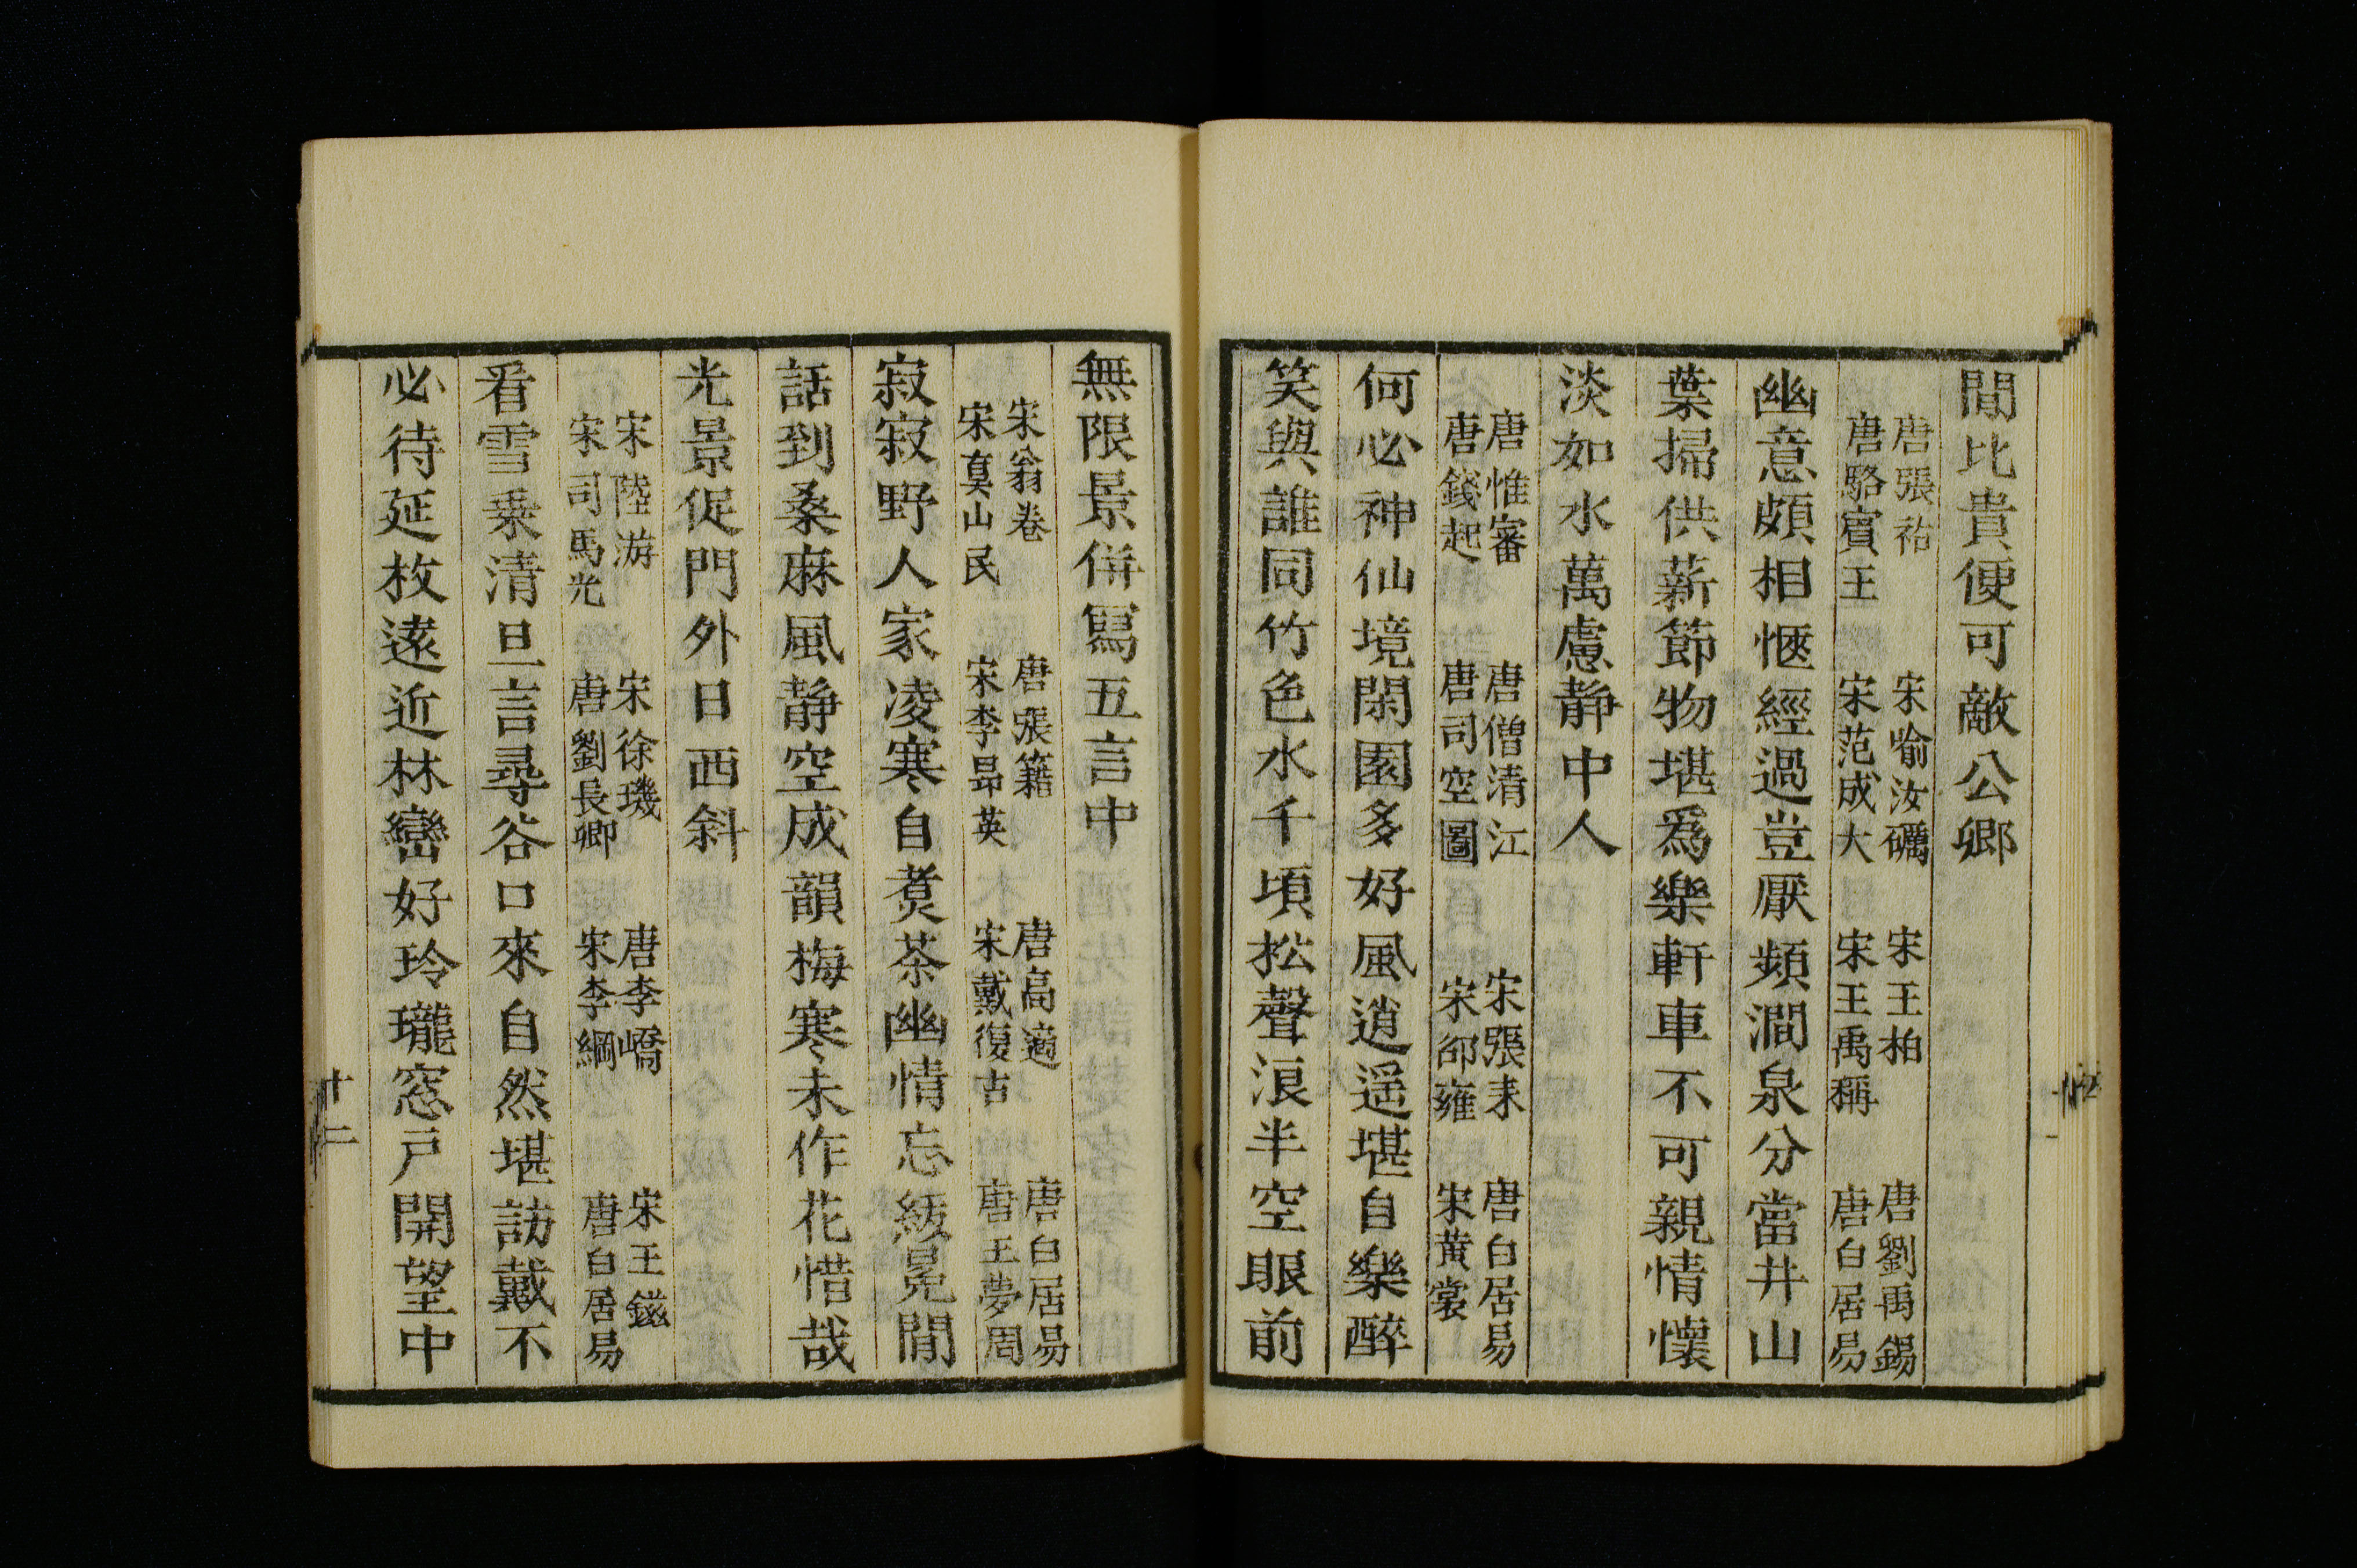 閒比貴便可敵公卿
唐張祐 宋喻汝礪 宋王柏 唐劉禹錫
唐駱賓王 宋范成大 宋王禹稱 唐白居易
幽意頗相愜經過豈厭頻澗泉分當井山
葉掃供薪節物堪爲樂軒車不可親情懷
淡如水萬慮静中人
唐惟審 唐僧清江 宋張耒 唐白居易
唐錢起 唐司空圖 宋邵雍 宋黃裳
何必神仙境閑園多好風逍遥堪自樂醉
笑與誰同竹色水千頃松聲浪半空眼前
無限景併寫五言中
宋翁卷 唐張籍 唐高適 唐白居易
宋真山民 宋李昴英 宋戴復古 唐王夢周
寂寂野人家凌寒自煑茶幽情忘紱冕閒
話到桑麻風静空成韻梅寒未作花惜哉
光景促門外日西斜
宋陸游 宋徐璣 唐李嶠 宋王鎡
宋司馬光 唐劉長卿 宋李綱 唐白居易
看雪乗清旦言尋谷口來自然堪訪戴不
必待延枚遠近林巒好玲瓏窓戸開望中
十二